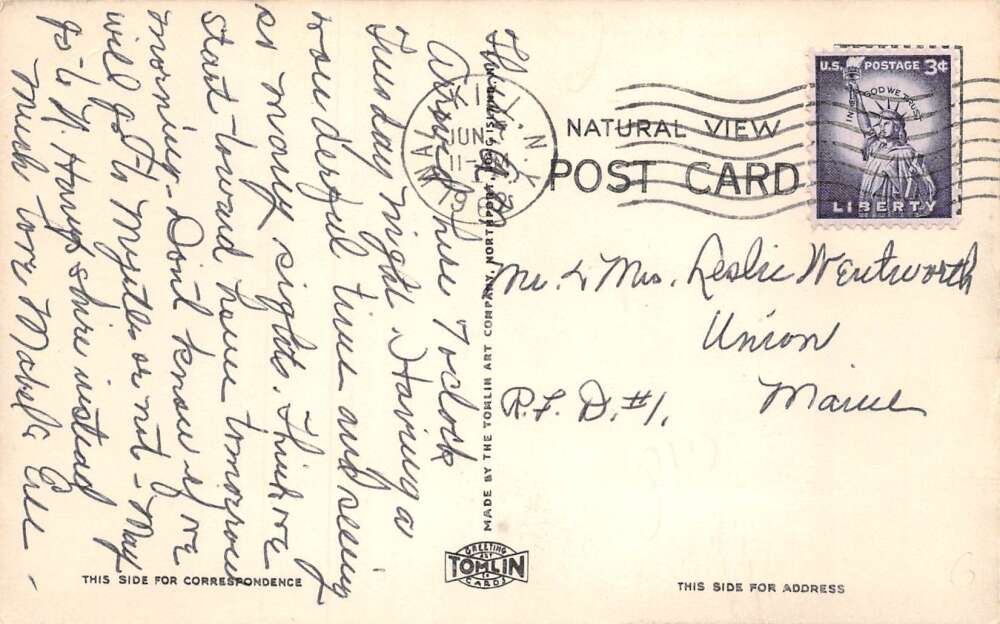 Arrived here 7 oclock
Tuesday night. Having a
wonderful time and seeing
so many sights. Think we
start toward home tomorrow
morning - Don't know if we
will go to Myrtles or not - May
go to N. Hampshire instead
Much love Mabel &
THIS SIDE FOR CORRESPONDENCE
MADE BY THE TOMLIN ART COMPANY, NORTHPORT, LONG ISLAND
GREETING
ART
TOMLIN
CARDS
N.Y.
JUN
11 -
NATURAL VIEW
POST CARD
U.S. POSTAGE 3¢
IN GOD WE TRUST
LIBERTY
Mr. & Mrs. Leslie Wentworth
Union
R.F.D. #1. Maine
THIS SIDE FOR ADDRESS